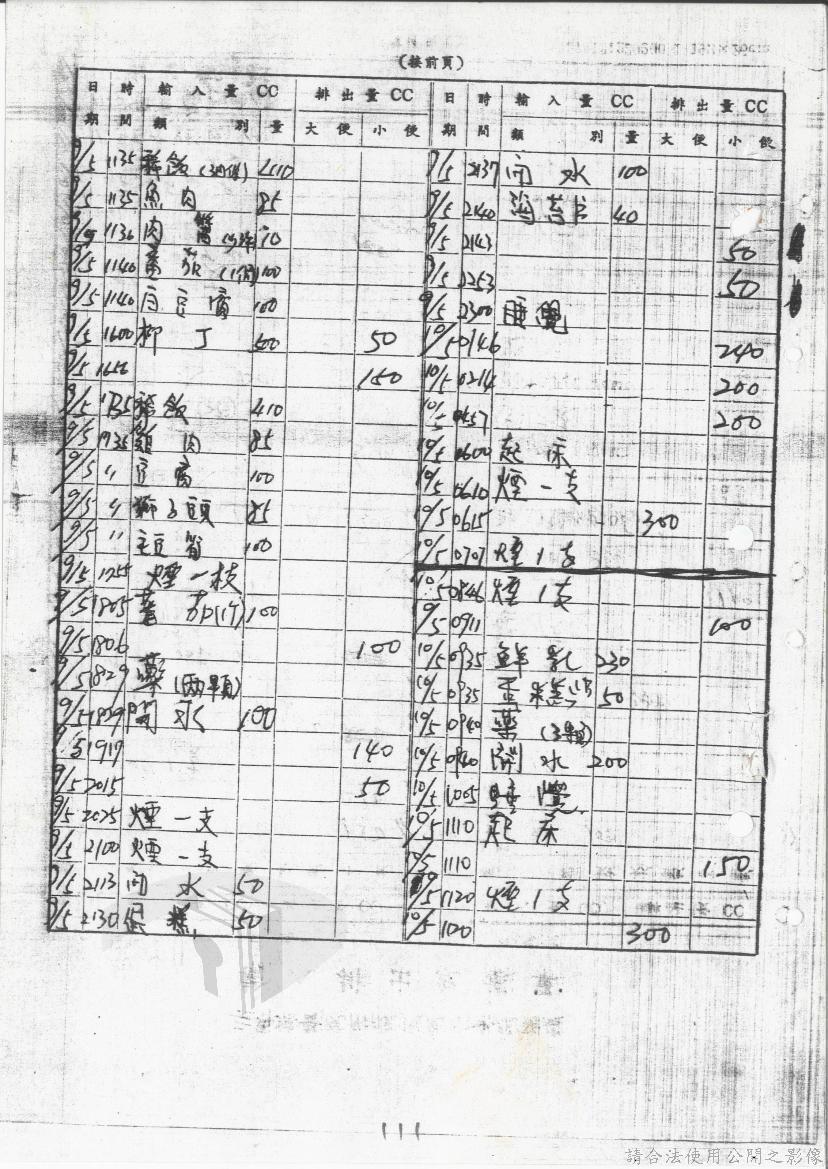 (接前頁)
日期 時間 輸入量CC 類別 量 排出量CC 大便 小便
9/5 1135 稀飯
9/5 1135 魚肉 85
9/5 1136 肉
9/5 1140 100
9/5 1140 白豆腐 100
9/5 1600 柳丁 500 50
9/5 1656 150
9/5 1735 稀飯 410
9/5 1735 肉 85
9/5 〃 豆腐 100
9/5 〃 獅子頭 85
9/5 〃 100
9/5 1755 煙一枝
9/5 1805 100
9/5 1806 100
9/5 1829 藥(兩顆)
9/5 1829 開水 100
9/5 1917 140
9/5 2015 50
9/5 2025 煙一支
9/5 2100 煙一支
9/5 2113 開水 50
9/5 2130 蛋糕 50
日期 時間 輸入量CC 類別 量 排出量CC 大便 小便
9/5 2137 開水 100
9/5 2140 40
9/5 2143 50
9/5 2253 50
9/5 2300 睡覺
10/5 0146 240
10/5 0214 200
10/5 0457 200
10/5 0600 起床
10/5 0610 煙一支
10/5 0615 300
10/5 0707 煙1支
10/5 0846 煙1支
9/5 0911 100
10/5 0935 鮮乳 230
10/5 0935 50
10/5 0940 藥(3顆)
10/5 0940 開水 200
10/5 1005 睡覺
10/5 1110 起床
10/5 1110 150
10/5 1120 煙1支
10/5 1120 300
111
請合法使用公開之影像